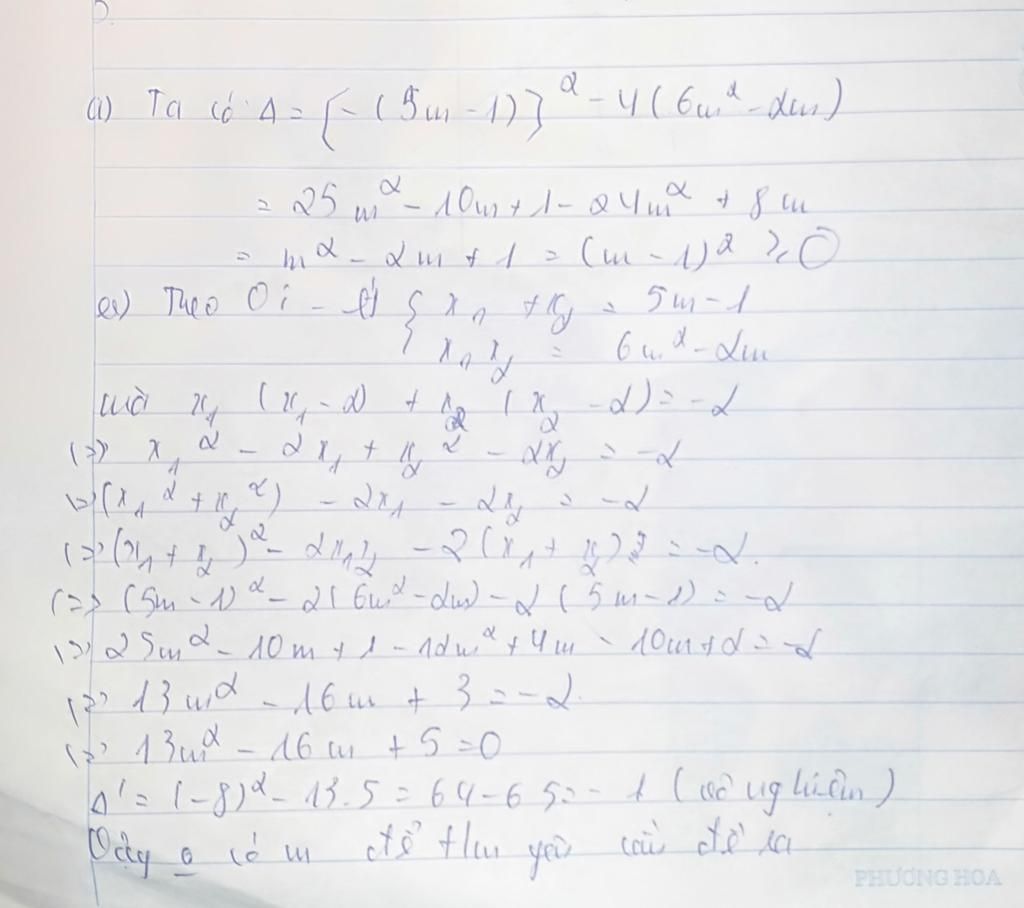 a) Ta có Δ = [-(5m-1)]² - 4(6m² - 2m)
= 25m² - 10m + 1 - 24m² + 8m
= m² - 2m + 1 = (m - 1)² ≥ 0
Theo Vi-ét { x₁ + x₂ = 5m - 1
x₁x₂ = 6m² - 2m
mà x₁ (x₁ - 2) + x₂ (x₂ - 2) = -2
(=) x₁² - 2x₁ + x₂² - 2x₂ = -2
(=) (x₁² + x₂²) - 2x₁ - 2x₂ = -2
(=) (x₁ + x₂)² - 2x₁x₂ - 2(x₁ + x₂) = -2.
(=) (5m - 1)² - 2(6m² - 2m) - 2(5m - 1) = -2
(=) 25m² - 10m + 1 - 12m² + 4m - 10m + 2 = -2
(=) 13m² - 16m + 3 = -2.
(=) 13m² - 16m + 5 = 0
Δ' = (-8)² - 13.5 = 64 - 65 = -1 (vô nghiệm)
Vậy có m để yêu cầu đề ra
PHƯƠNG HOA